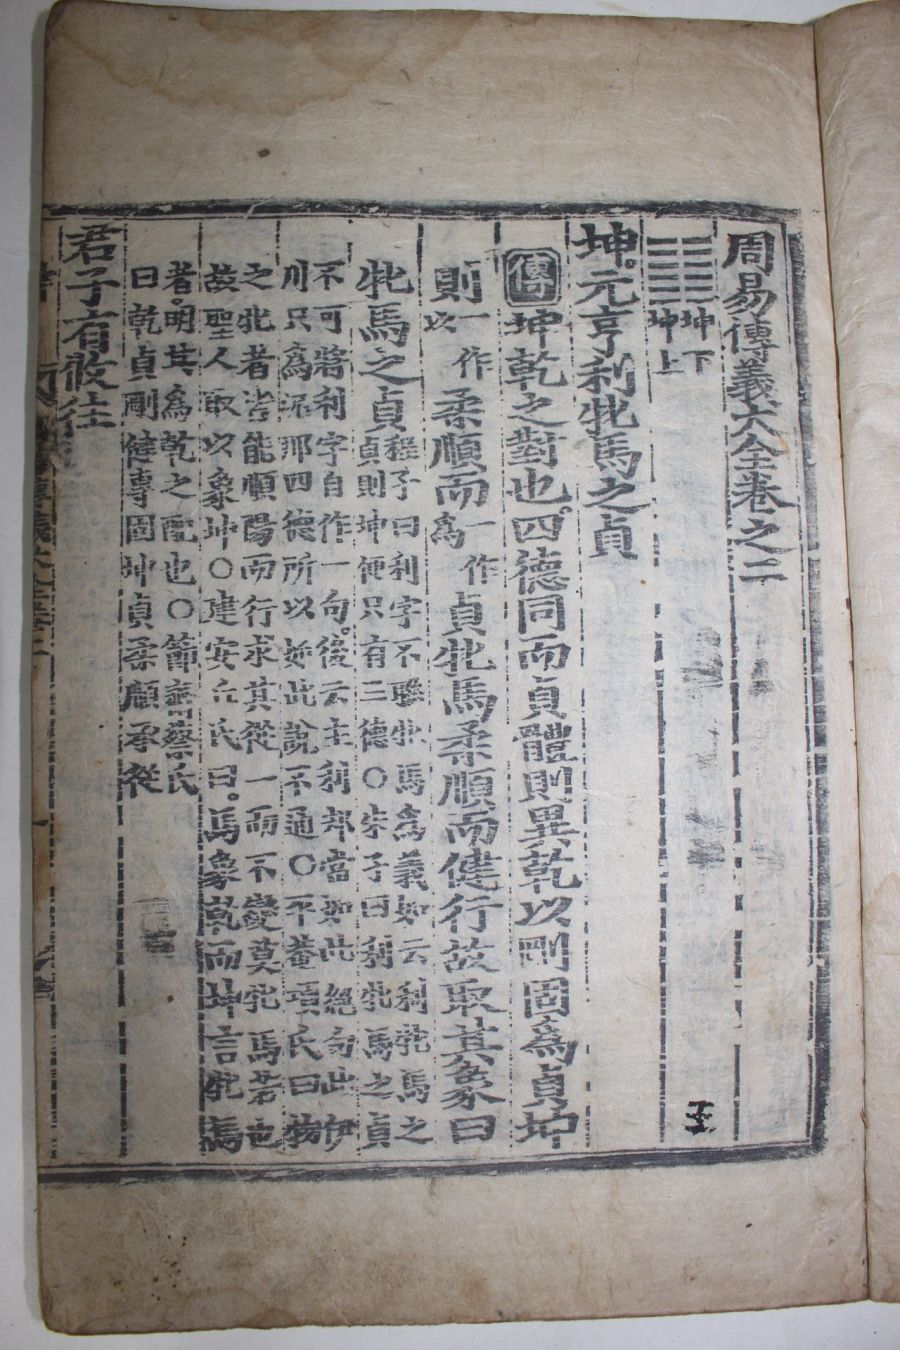 周易傳義大全卷之二
坤下
坤上
坤元亨利牝馬之貞
傳坤乾之對也四德同而貞體則異乾以剛固爲貞坤
則一作以柔順而一作爲貞牝馬柔順而健行故取其象曰
牝馬之貞
程子曰利字不聯牝馬爲義如云利牝馬之
貞則坤便只有三德○朱子曰利牝馬之貞
不可將利字自作一句後云主利却當如此絕句此伊
川只爲泥那四德所以如此說不通○平菴項氏曰物
之牝者皆能順陽而行求其從一而不變莫牝馬若也
故聖人取以象坤○建安丘氏曰馬象乾而坤言牝馬
者明其爲乾之配也○節齋蔡氏
曰乾貞剛健專固坤貞柔順承從
君子有攸往